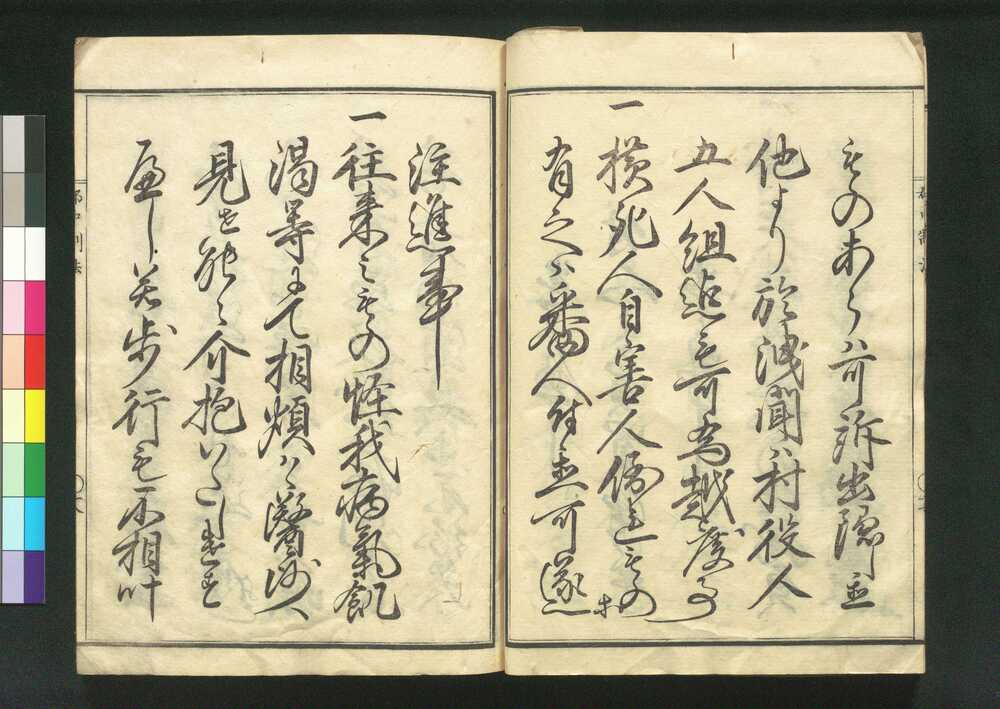 ものあらハ可訴出隠置
他より於洩聞ハ村役人
五人組迄も可為越度事
一横死人自害人倒もの等
有之ハ番人付置可遂
注進事
一往来之もの怪我病氣飢
渇等にて相煩ハヽ醫師へ
見せ能々介抱いたし遣す
へし若歩行も不相叶